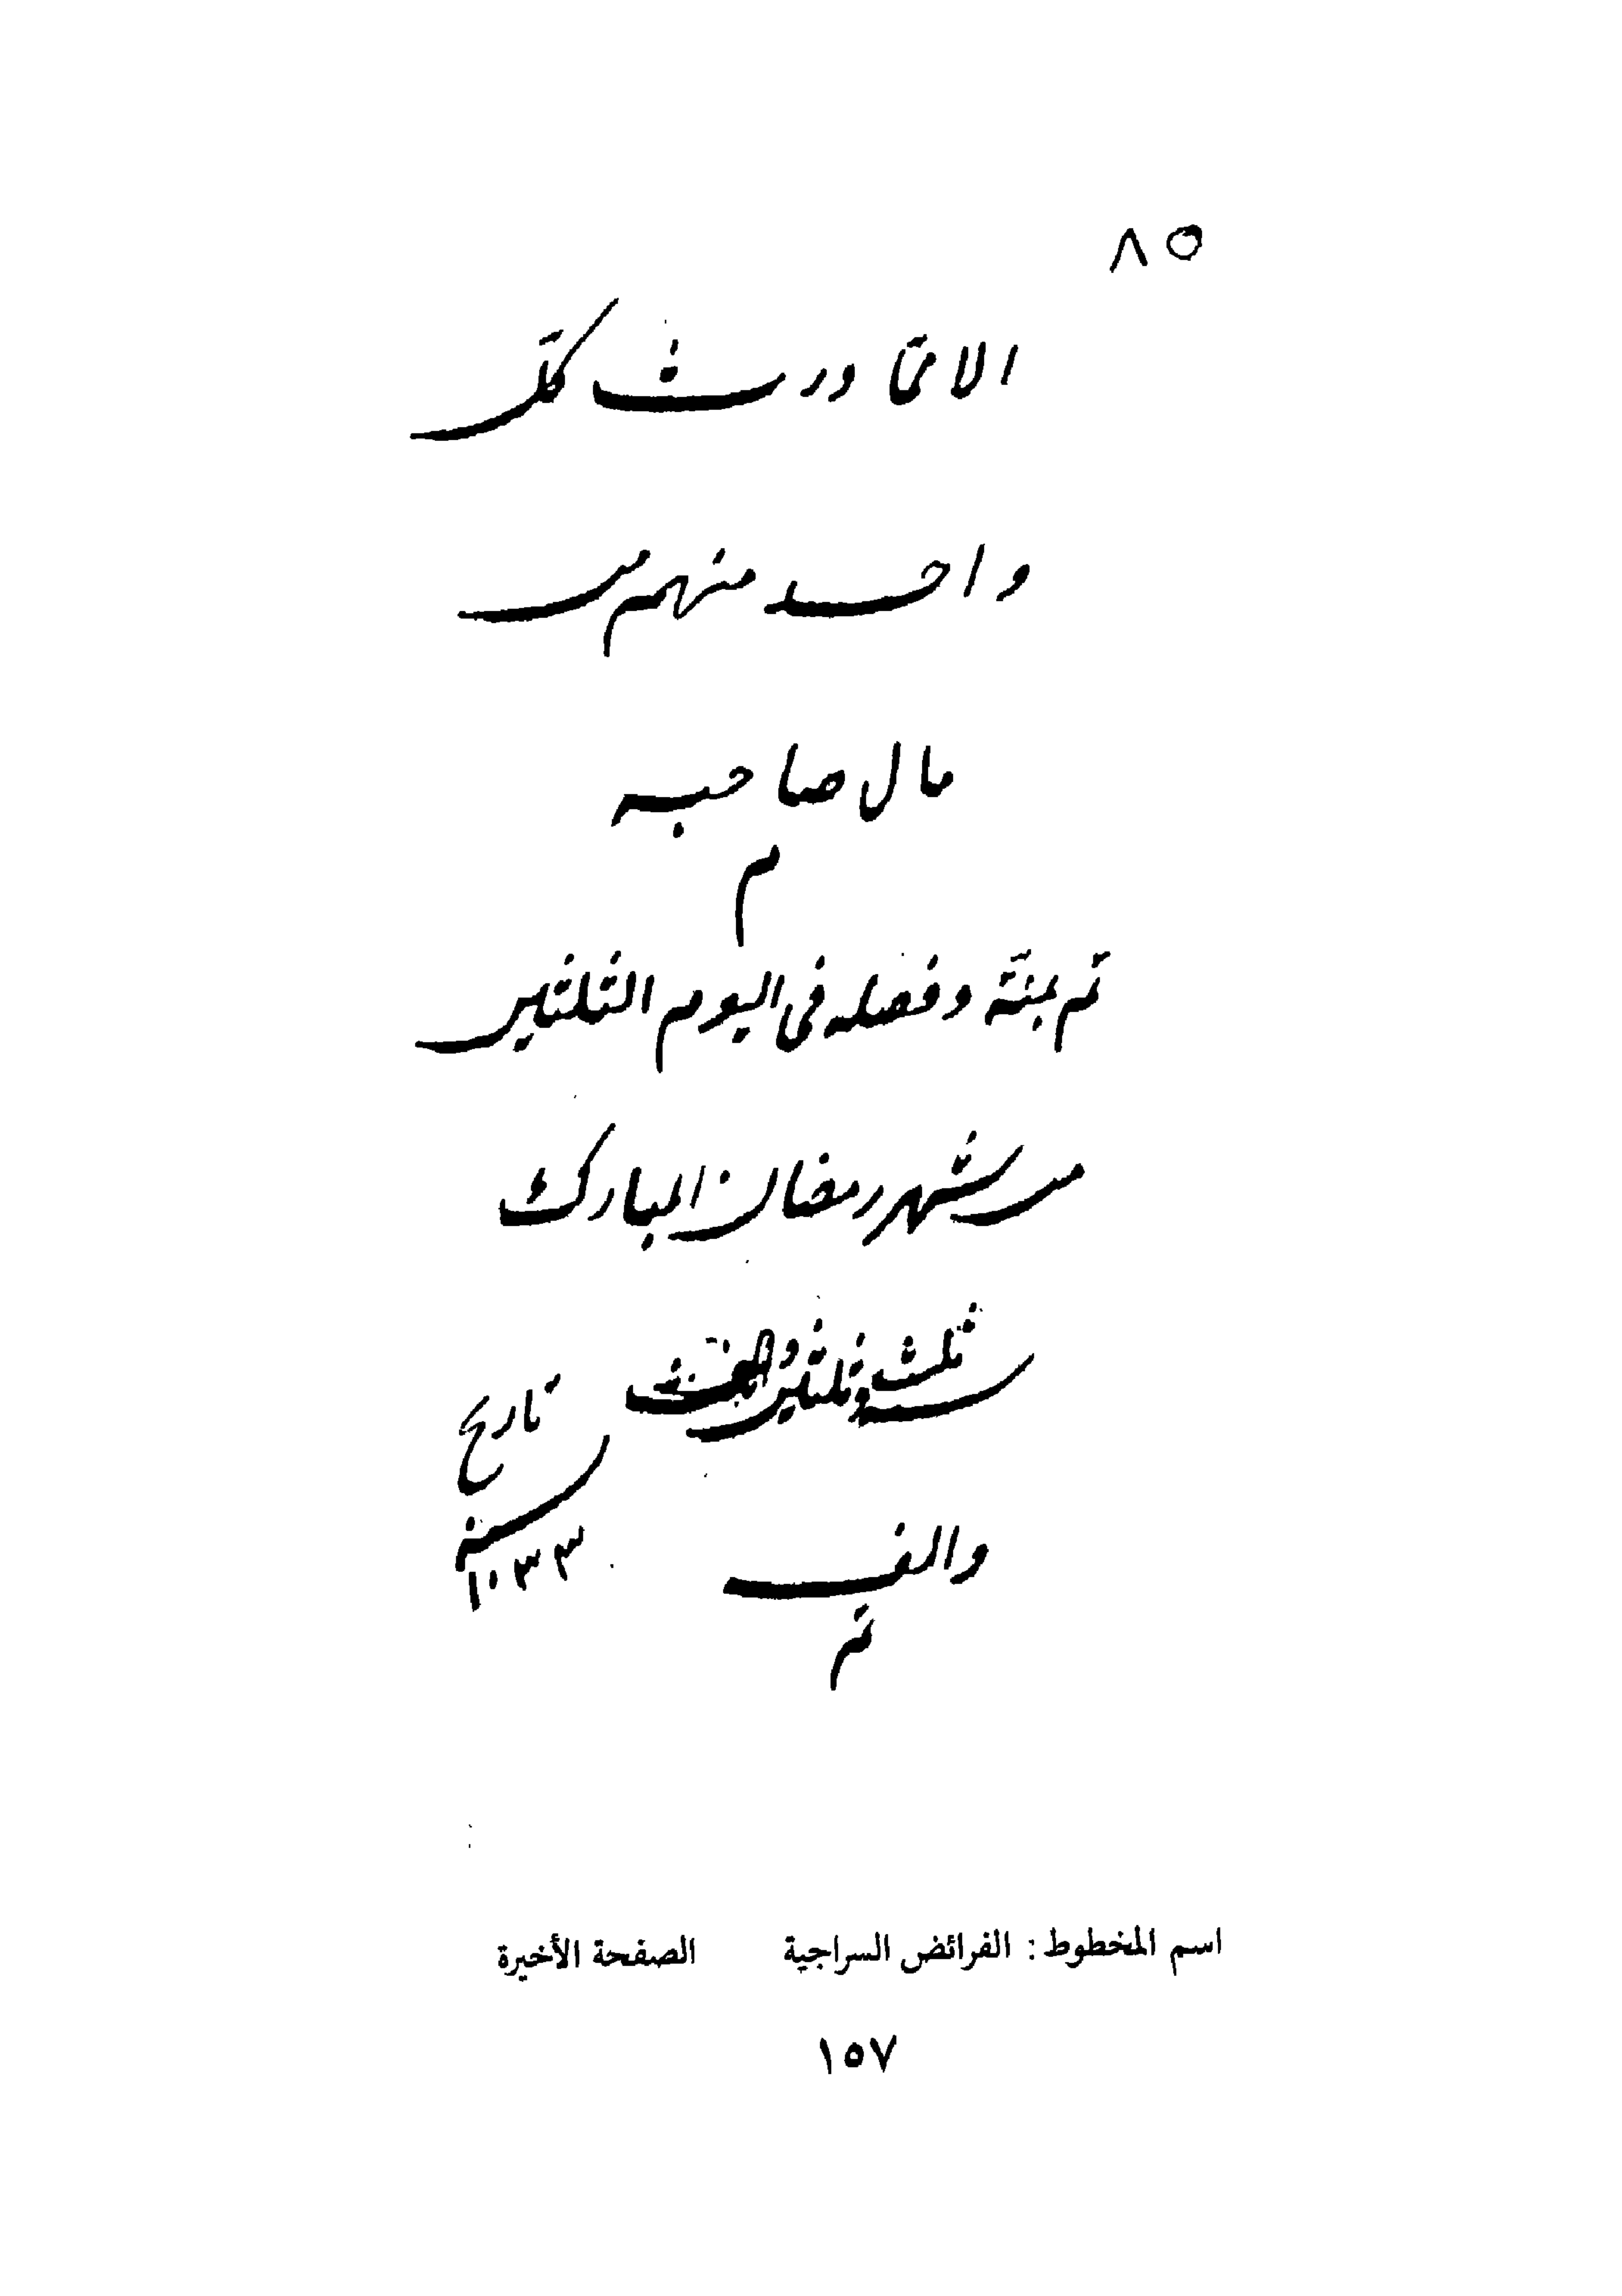 ٨٥
الا مما ورث كل
واحد منهم من
مال صاحبه
م
تم بمنه وفضله فى اليوم الثلثين
من شهر رمضان المبارك
سنه ثلث وثلثين
والف
تم
تاريخ
سنه
١٠٣٣
اسم المخطوط : الفرائض السراجية الصفحة الأخيرة
١٥٧